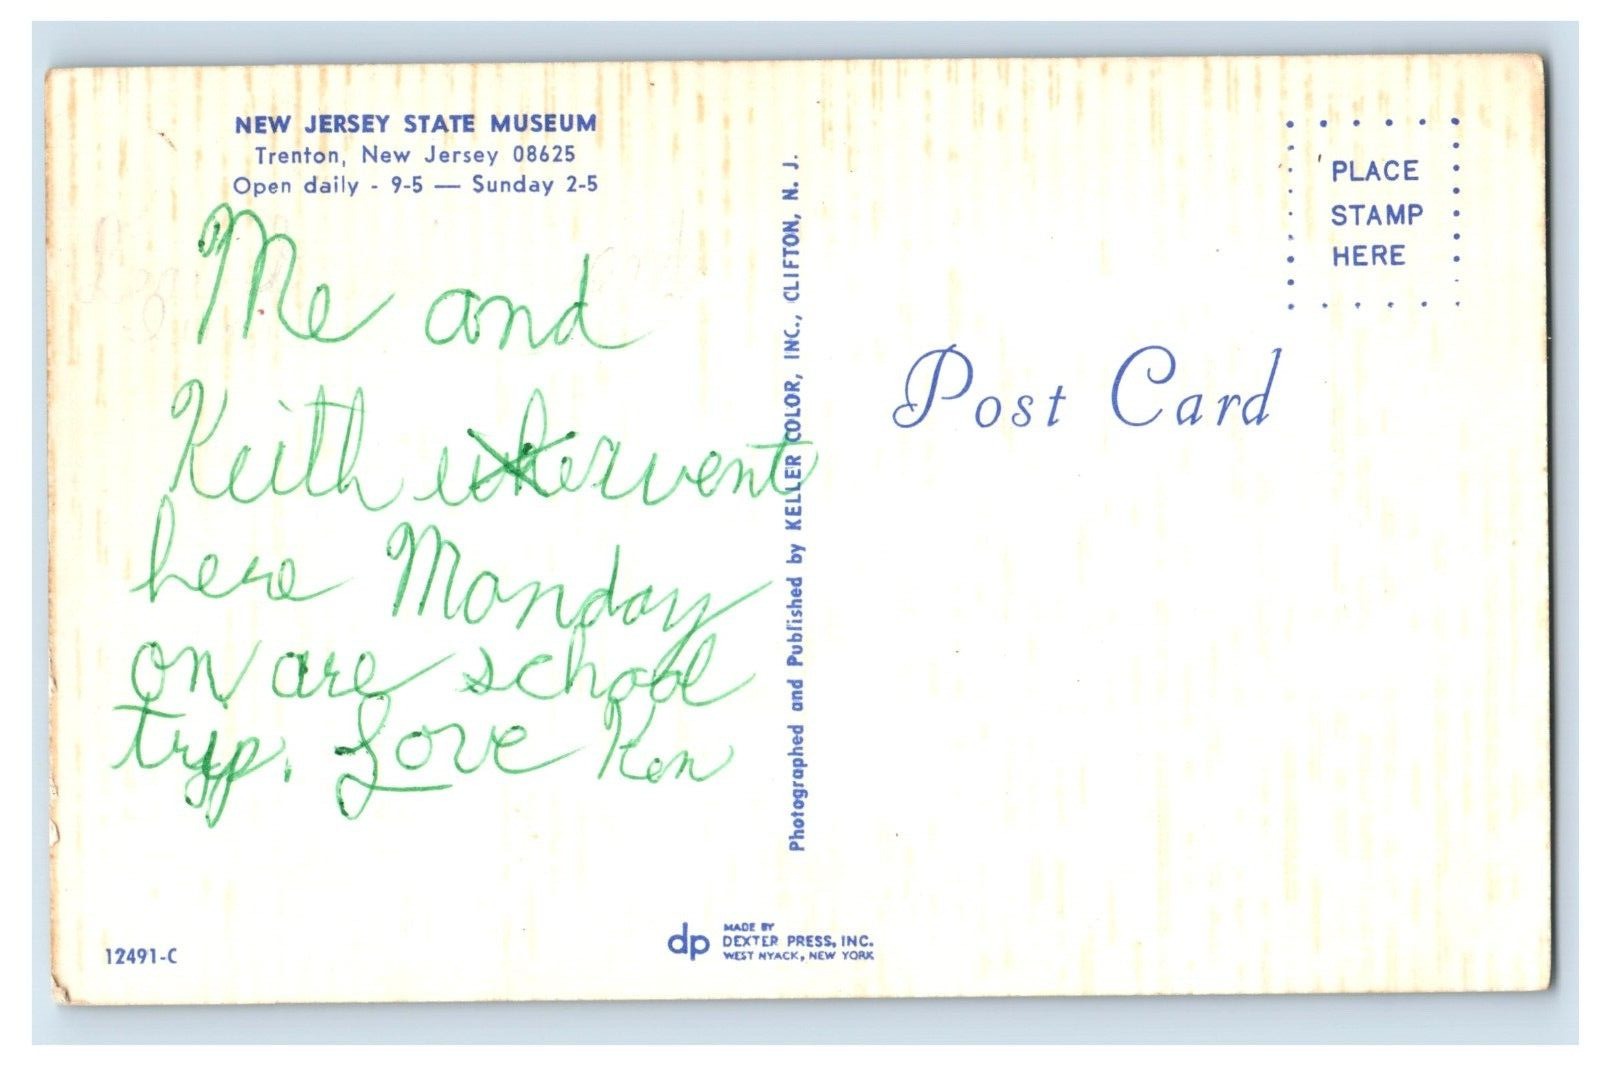 NEW JERSEY STATE MUSEUM
Trenton, New Jersey 08625
Open daily - 9-5 — Sunday 2-5
Me and
Keith went
here Monday
on are school
tryp. Love Ken
12491-C
Photographed and Published by KELLER COLOR, INC., CLIFTON, N. J.
dp
MADE BY
DEXTER PRESS, INC.
WEST NYACK, NEW YORK
PLACE
STAMP
HERE
Post Card